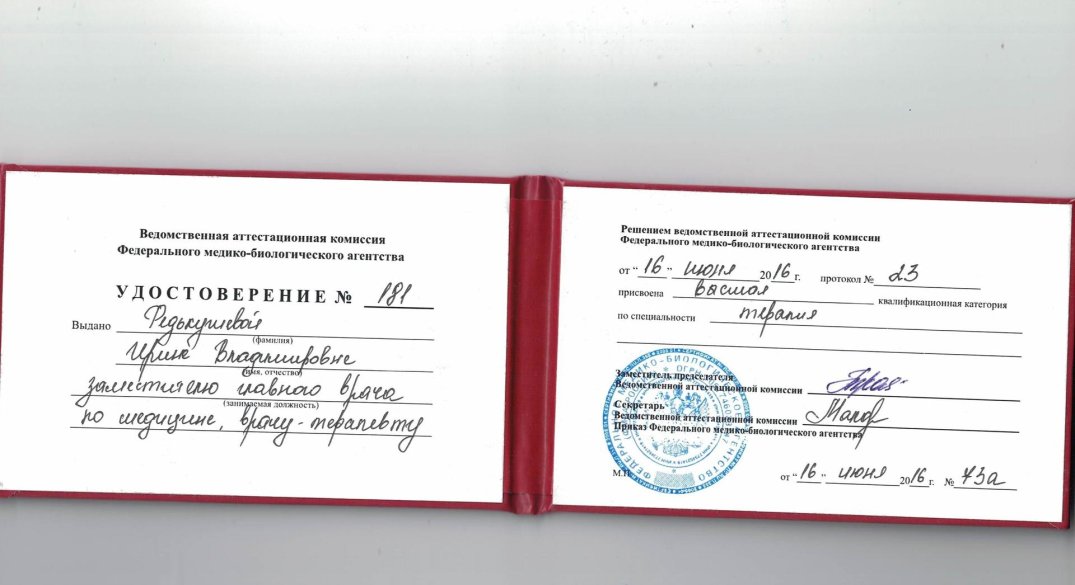 Ведомственная аттестационная комиссия
Федерального медико-биологического агентства
УДОСТОВЕРЕНИЕ № 181
Выдано Редькушевой
(фамилия)
Ирине Владимировне
(имя, отчество)
заместителю главного врача
(занимаемая должность)
по медицине, врачу-терапевту
Решением ведомственной аттестационной комиссии
Федерального медико-биологического агентства
от "16" июня 2016 г. протокол № 23
присвоена высшая квалификационная категория
по специальности терапия
Заместитель председателя
Ведомственной аттестационной комиссии
Секретарь
Ведомственной аттестационной комиссии
Приказ Федерального медико-биологического агентства
М.П.
от "16" июня 2016 г. № 73а